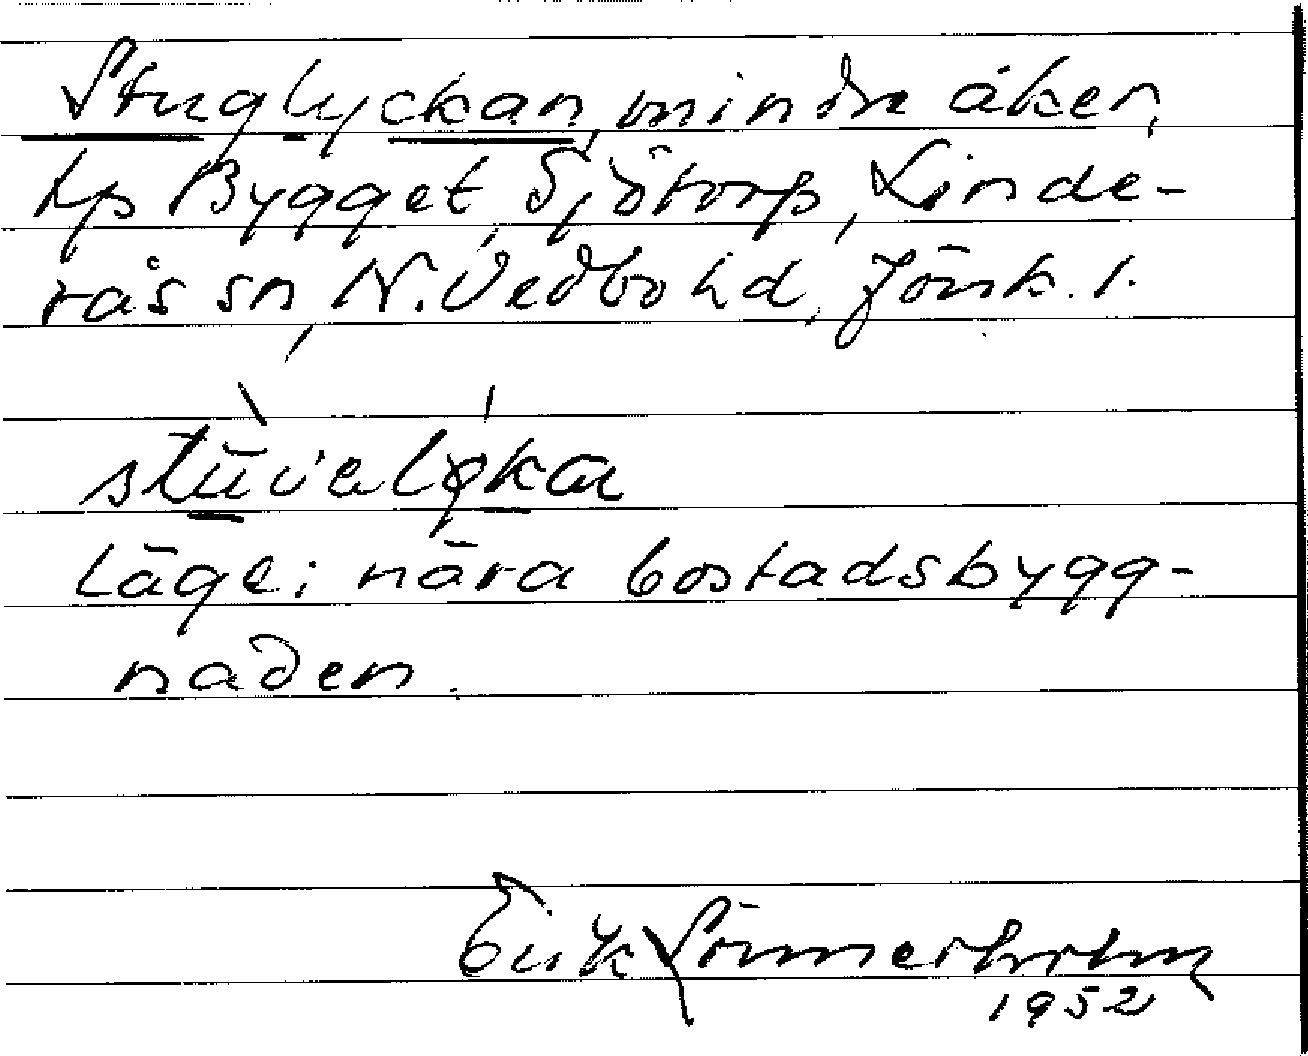 Stuglyckan, mindre åker,
tp Bygget, Sjötorp, Linde-
rås sn, N. Vedbo hd, Jönk. l.
stuvelyka
Läge: nära bostadsbygg-
naden.
Erik Sönnerholm
1952